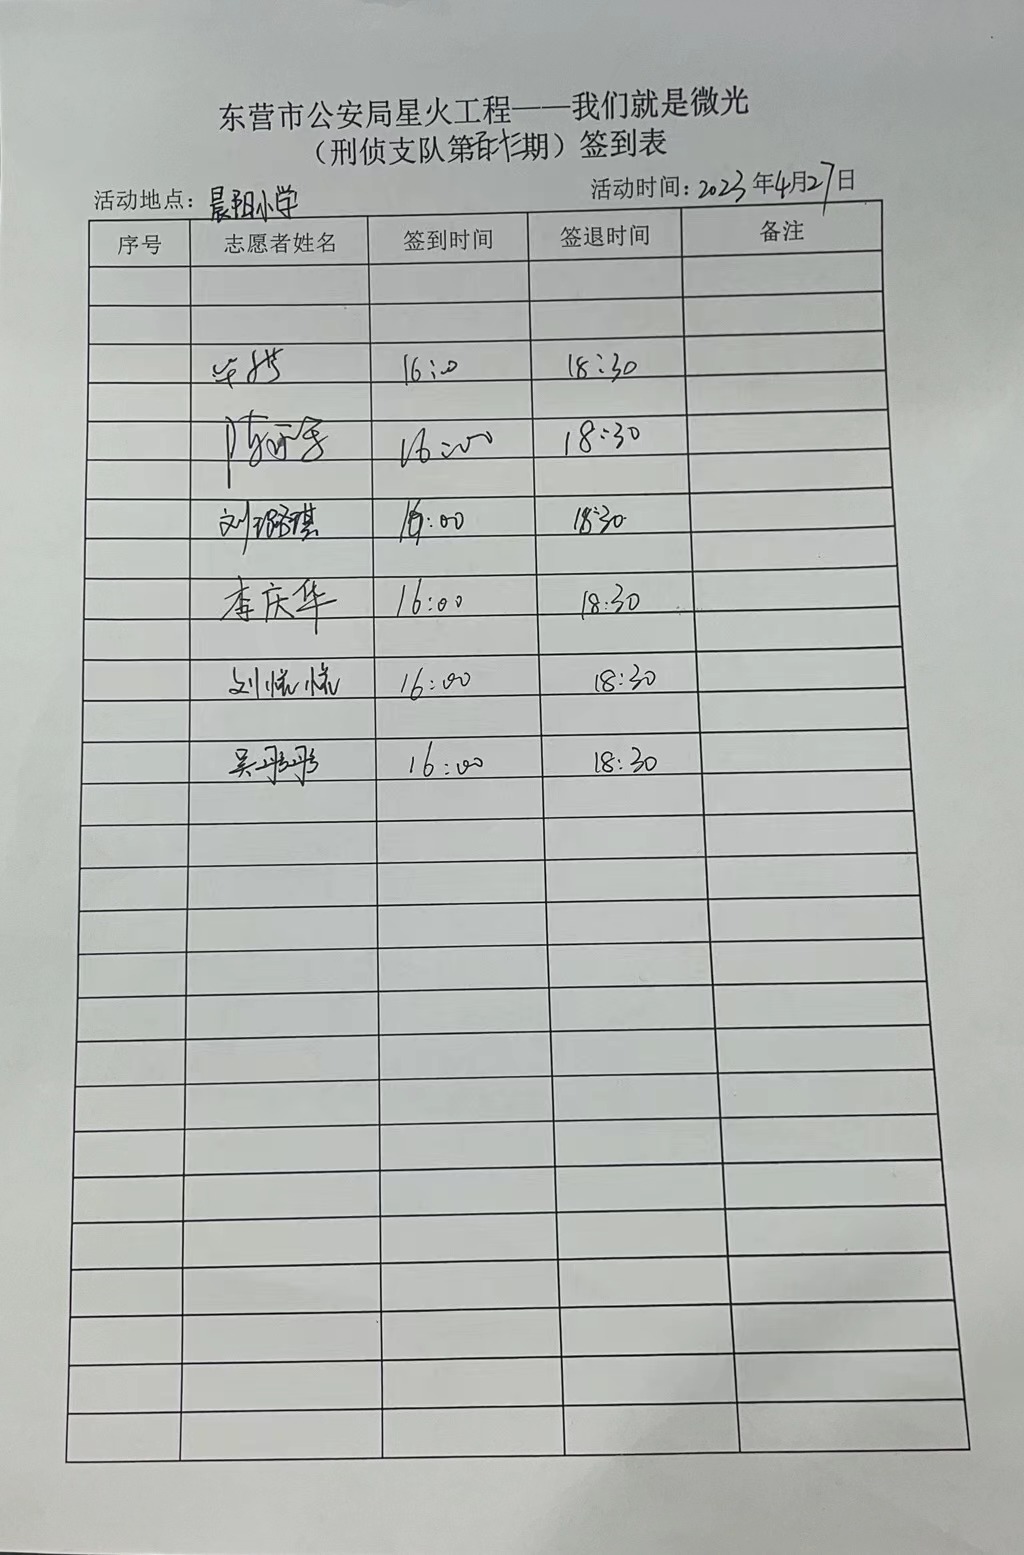 东营市公安局星火工程——我们就是微光
（刑侦支队第 期）签到表
活动地点：晨阳小学 活动时间：2023年4月27日
序号 志愿者姓名 签到时间 签退时间 备注
16:00 18:30
16:00 18:30
刘璐琪 16:00 18:30
李庆华 16:00 18:30
刘恍恍 16:00 18:30
吴彤彤 16:00 18:30